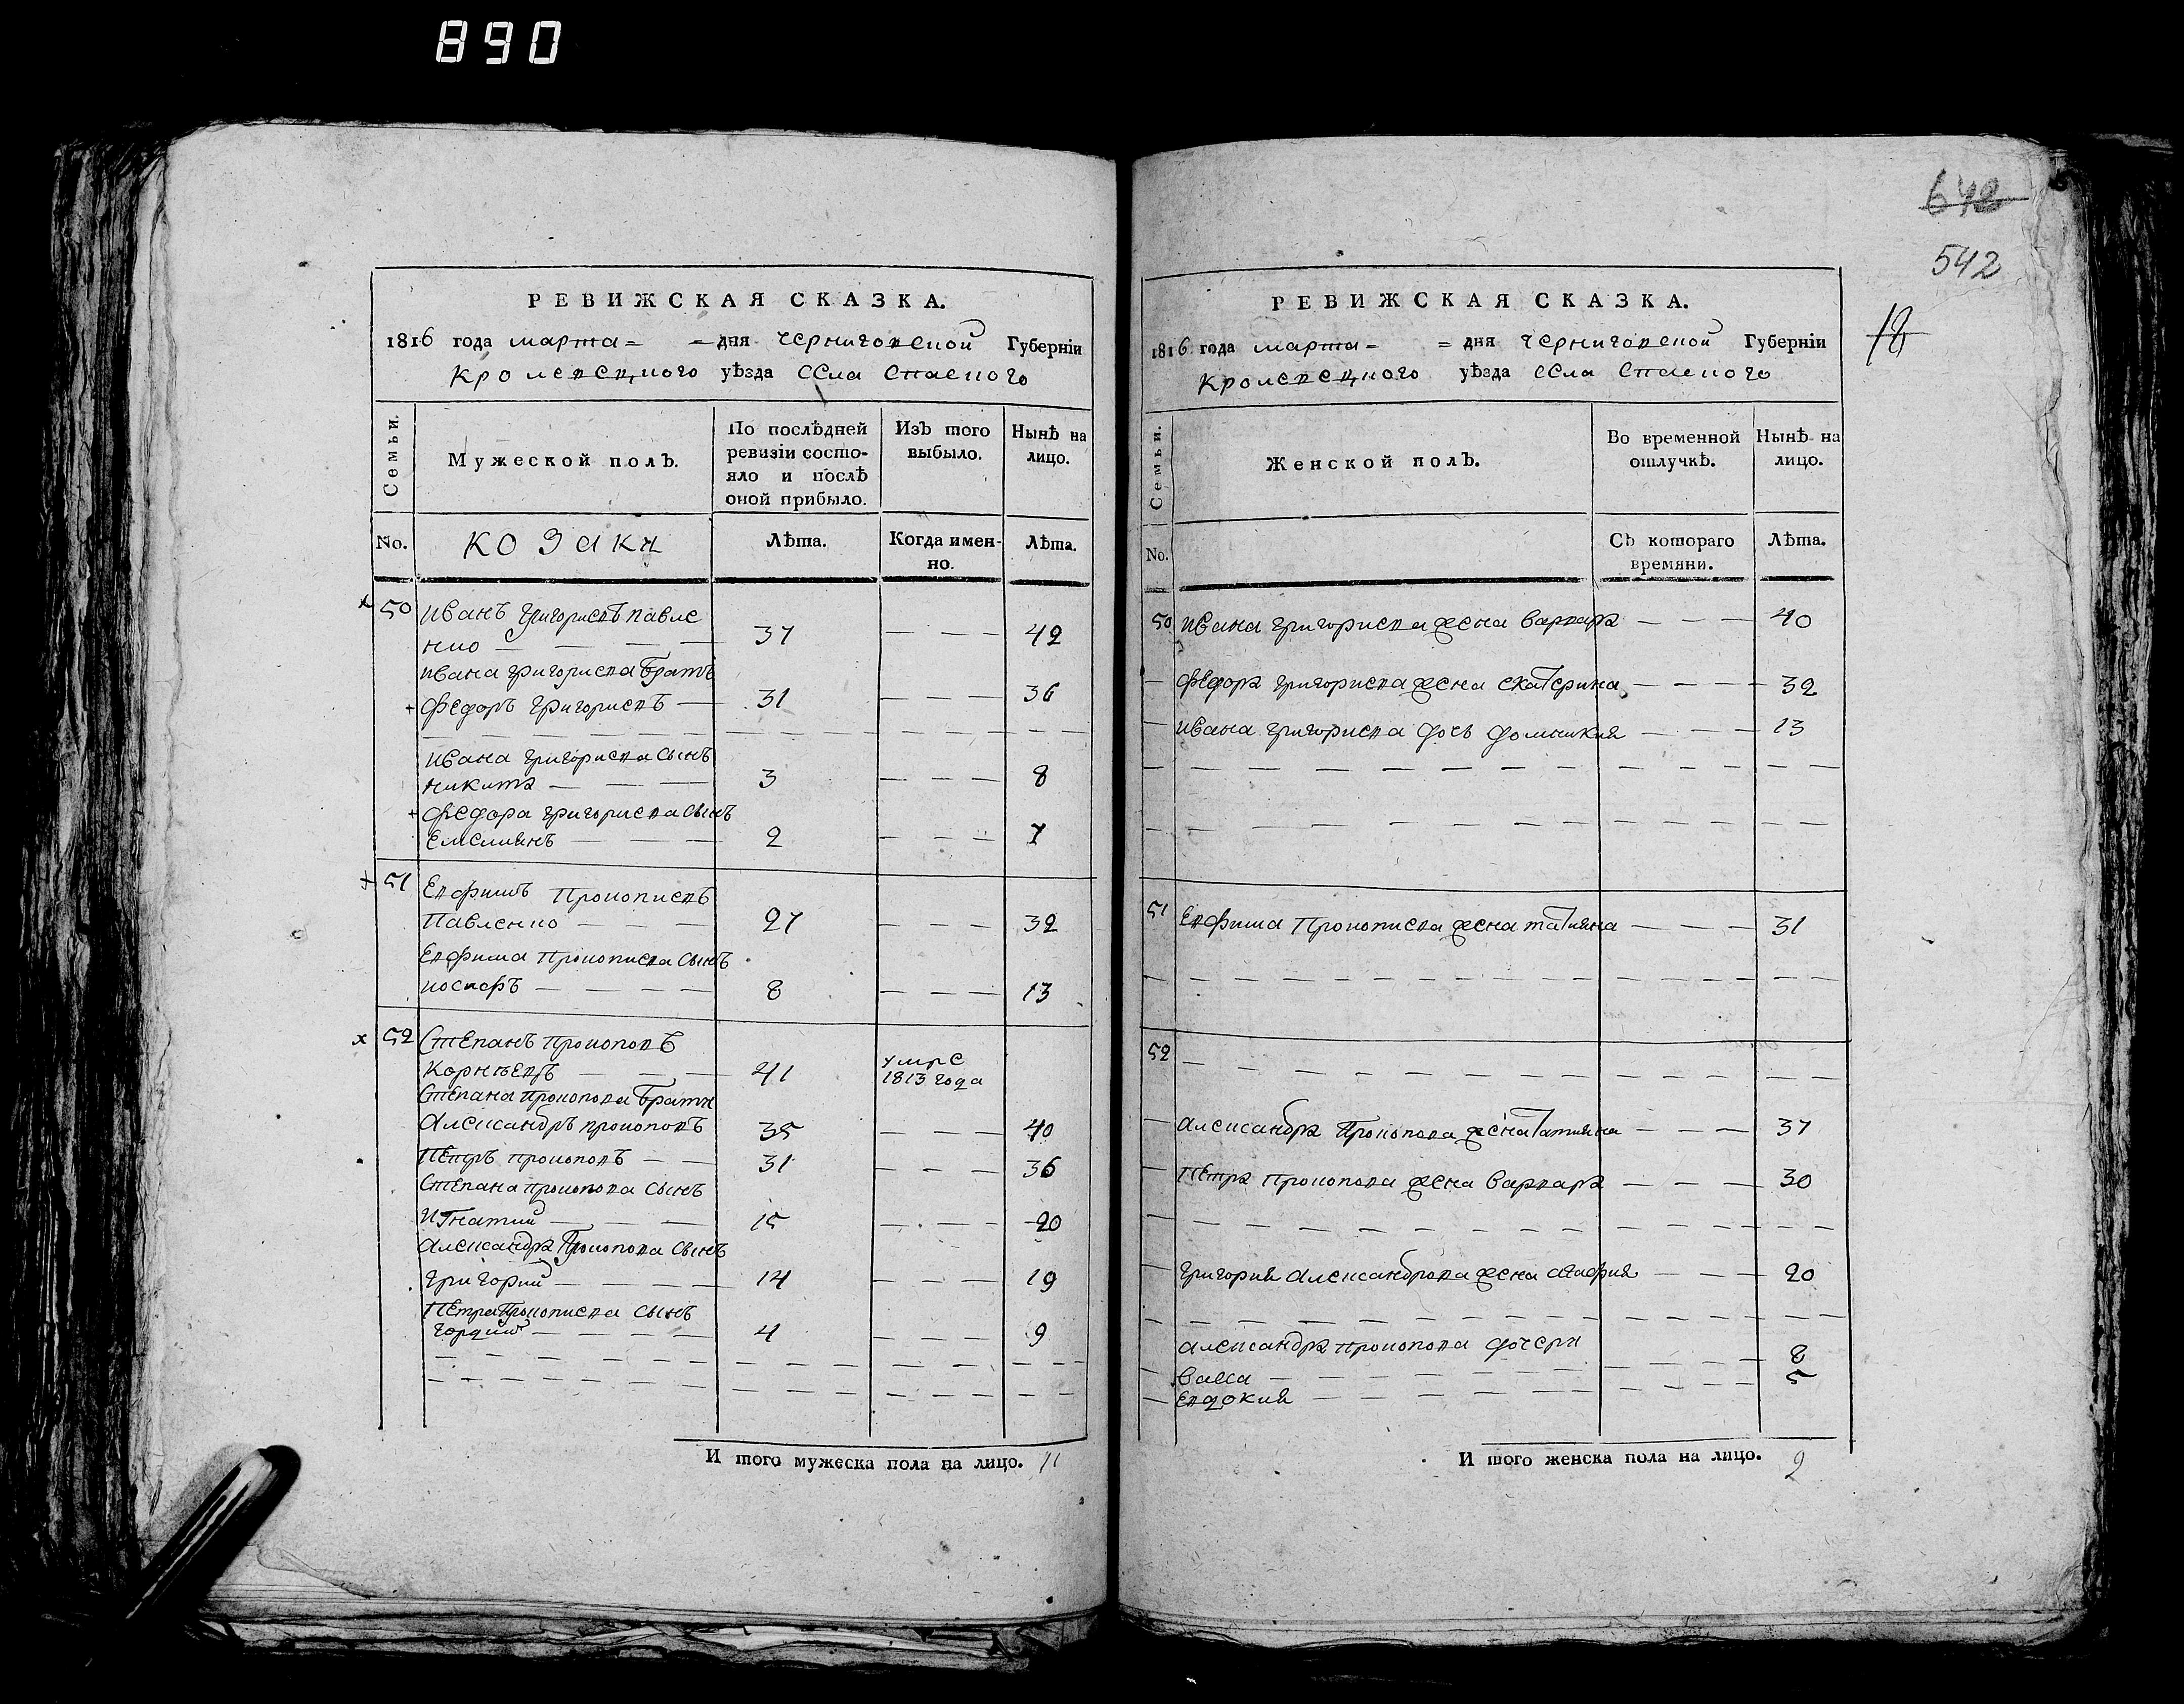 890
642
542
18
РЕВИЖСКАЯ СКАЗКА.
1816 года марта = = дня Черниговской Губерніи
Кролевецкого уѣзда села Спаского
Семьи.
Мужеской полъ.
По послѣдней ревизіи состояло и послѣ оной прибыло.
Изъ того выбыло.
Нынѣ на лицо.
No.
козаки
Лѣта.
Когда именно.
Лѣта.
50 Иванъ Григориевъ Павле
нко — — — 37 — — — 42
Ивана Григориева братъ
Федоръ Григориевъ — 31 — — — 36
Ивана Григориева сынъ
Никита — — — 3 — — — 8
Федора Григориева сынъ
Емелиянъ — — — 2 — — — 7
51 Евфимъ Прокопиевъ
Павленко — — — 27 — — — 32
Евфима Прокопиева сынъ
Иосифъ — — — — 8 — — — 13
52 Степанъ Прокоповъ
Корнѣевъ — — — 41 умре 1813 года
Степана Прокопова братья
Александръ Прокоповъ 35 — — — 40
Петръ Прокоповъ — — 31 — — — 36
Степана Прокопова сынъ
Игнатий — — — 15 — — — 20
Александра Прокопова сынъ
Григорий — — — — 14 — — — 19
Петра Прокопиева сынъ
Гордий — — — — 4 — — — 9
И того мужеска пола на лицо. 11
РЕВИЖСКАЯ СКАЗКА.
1816 года марта = = дня Черниговской Губерніи
Кролевецкого уѣзда села Спаского
Семьи.
Женской полъ.
Во временной отлучкѣ.
Нынѣ на лицо.
No.
Съ котораго времяни.
Лѣта.
50 Ивана Григориева жена Варвара — — — 40
— Федора Григориева жена Екатерина — — — 32
— Ивана Григориева дочь Домникия — — — 13
51 Евфима Прокопиева жена Татияна — — — 31
52 —
— Александра Прокопова жена Татияна — — — 37
— Петра Прокопова жена Варвара — — — 30
— Григория Александрова жена Агафия — — — 20
Александра Прокопова дочери
— Васса — — — 8
— Евдокия — — — 5
И того женска пола на лицо. 9